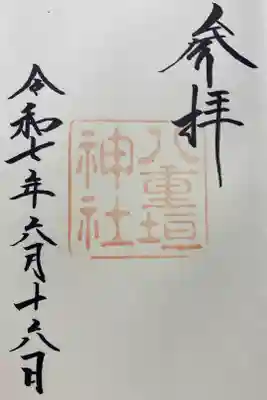 奉拝
八重垣
神社
令和七年六月十六日